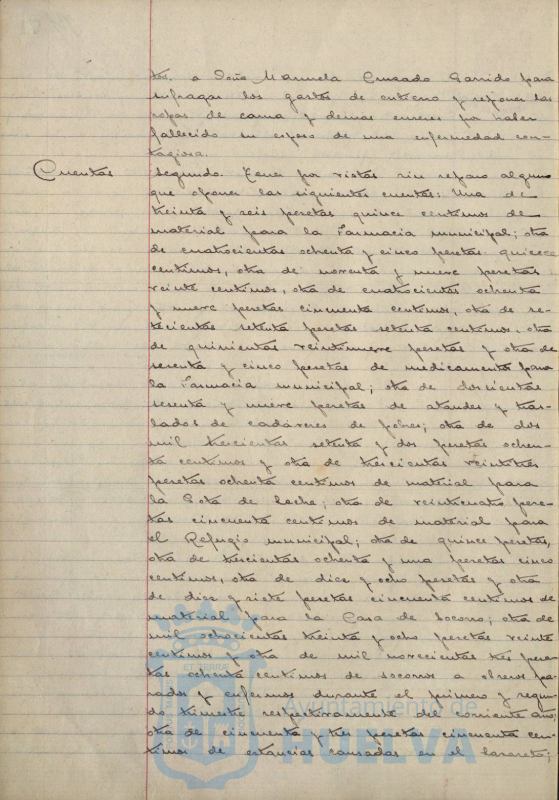 tas. a Doña Manuela Cruzado Garrido para
sufragar los gastos de entierro y reponer las
ropas de cama y demas enseres por haber
fallecido su esposo de una enfermedad con-
tagiosa.
Cuentas
Segundo. Tener por vistas sin reparo alguno
que oponer las siguientes cuentas: Una de
treinta y seis pesetas quince centimos de
material para la Farmacia municipal; otra
de cuatrocientas ochenta y cinco pesetas quince
centimos, otra de noventa y nueve pesetas
veinte centimos, otra de cuatrocientas ochenta
y nueve pesetas cincuenta centimos, otra de se-
tecientas setenta pesetas setenta centimos, otra
de quinientas veintinueve pesetas y otra de
sesenta y cinco pesetas de medicamentos para
la Farmacia municipal; otra de doscientas
sesenta y nueve pesetas de ataudes y tras-
lados de cadáveres de pobres; otra de dos
mil trescientas setenta y dos pesetas ochen-
ta centimos y otra de trescientas veintitres
pesetas ochenta centimos de material para
la Gota de Leche; otra de veinticuatro pese-
tas cincuenta centimos de material para
el Refugio municipal; otra de quince pesetas,
otra de trescientas ochenta y una pesetas cinco
centimos, otra de diez y ocho pesetas y otra
de diez y siete pesetas cincuenta centimos de
material para la Casa de Socorro; otra de
mil ochocientas treinta y ocho pesetas veinte
centimos y otra de mil novecientas tres pese-
tas ochenta centimos de socorros a obreros pa-
rados y enfermos durante el primero y segun-
do trimestre respectivamente del corriente año;
otra de cincuenta y tres pesetas cincuenta cen-
timos de estancias causadas en el lazareto;
Ayuntamiento de
HUELVA